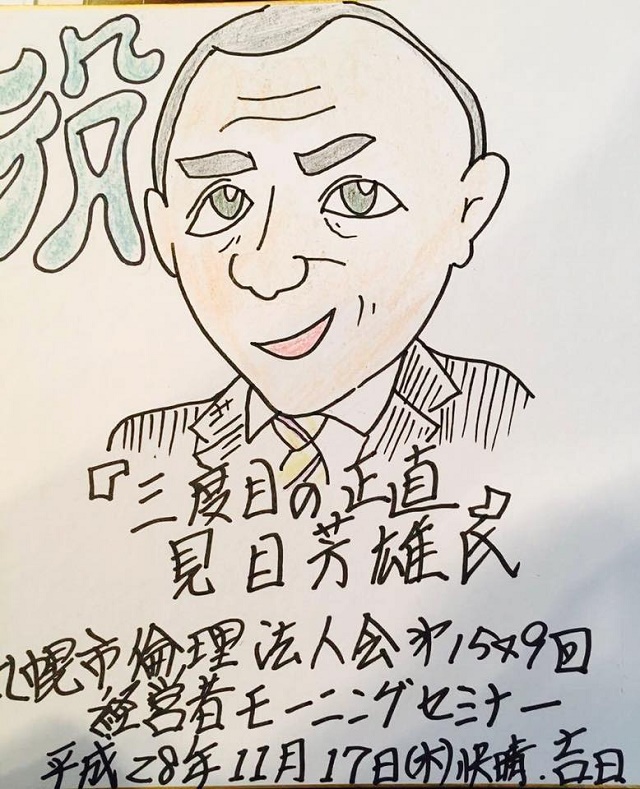 『三度目の正直』
見目芳雄氏
札幌市倫理法人会第1549回
経営者モーニングセミナー
平成28年11月17日(木)快晴.吉日